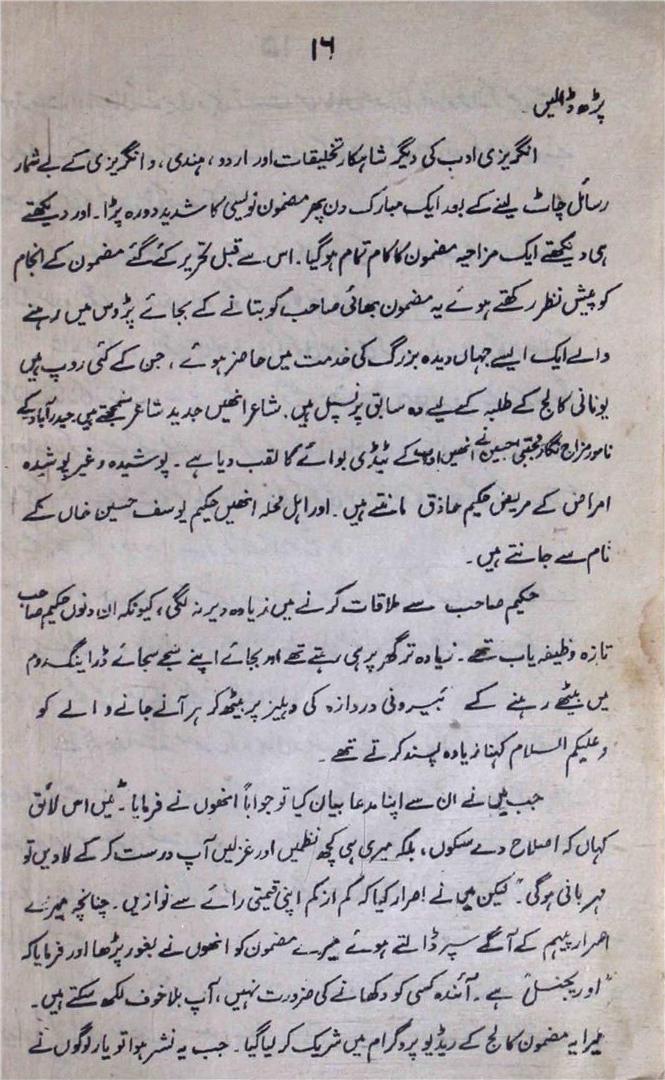 ۱۶
پڑھ ڈالیں۔
انگریزی ادب کی دیگر شاہکار تخلیقات اور اردو، ہندی، و انگریزی کے بے شمار
رسائل چاٹ لینے کے بعد ایک مبارک دن پھر مضمون نویسی کا شدید دورہ پڑا۔ اور دیکھتے
ہی دیکھتے ایک مزاحیہ مضمون کا کام تمام ہوگیا۔ اس سے قبل تحریر کئے گئے مضمون کے انجام
کو پیش نظر رکھتے ہوئے یہ مضمون بھائی صاحب کو بتانے کے بجائے پڑوس میں رہنے
والے ایک ایسے جہاں دیدہ بزرگ کی خدمت میں حاضر ہوئے، جن کے کئی روپ ہیں
یونانی کالج کے طلبہ کے لیے وہ سابق پرنسپل ہیں۔ شاعر انھیں جدید شاعر سمجھتے ہیں حیدرآباد کے
نامور مزاح نگار مجتبیٰ حسین نے انھیں ادب کے ٹیڈی بوائے کا لقب دیا ہے۔ پوشیدہ و غیر پوشیدہ
امراض کے مریض حکیم حاذق مانتے ہیں۔ اور اہل محلہ انھیں حکیم یوسف حسین خاں کے
نام سے جانتے ہیں۔
حکیم صاحب سے ملاقات کرنے میں زیادہ دیر نہ لگی، کیونکہ ان دنوں حکیم صاحب
تازہ وظیفہ یاب تھے۔ زیادہ تر گھر پر ہی رہتے تھے اور بجائے اپنے سجے سجائے ڈرائینگ روم
میں بیٹھے رہنے کے بیرونی دروازہ کی دہلیز پر بیٹھ کر ہر آنے جانے والے کو
وعلیکم السلام کہنا زیادہ پسند کرتے تھے۔
جب میں نے ان سے اپنا مدعا بیان کیا تو جواباً انھوں نے فرمایا۔ "میں اس لائق
کہاں کہ اصلاح دے سکوں، بلکہ میری ہی کچھ نظمیں اور غزلیں آپ درست کر کے لادیں تو
مہربانی ہوگی۔" لیکن میں نے اصرار کیا کہ کم از کم اپنی قیمتی رائے سے نوازیں۔ چنانچہ میرے
اصرار پیہم کے آگے سپر ڈالتے ہوئے میرے مضمون کو انھوں نے بغور پڑھا اور فرمایا کہ
"اوریجنل" ہے۔ آئندہ کسی کو دکھانے کی ضرورت نہیں، آپ بلا خوف لکھ سکتے ہیں۔
میرا یہ مضمون کالج کے ریڈیو پروگرام میں شریک کر لیا گیا۔ جب یہ نشر ہوا تو یار لوگوں نے